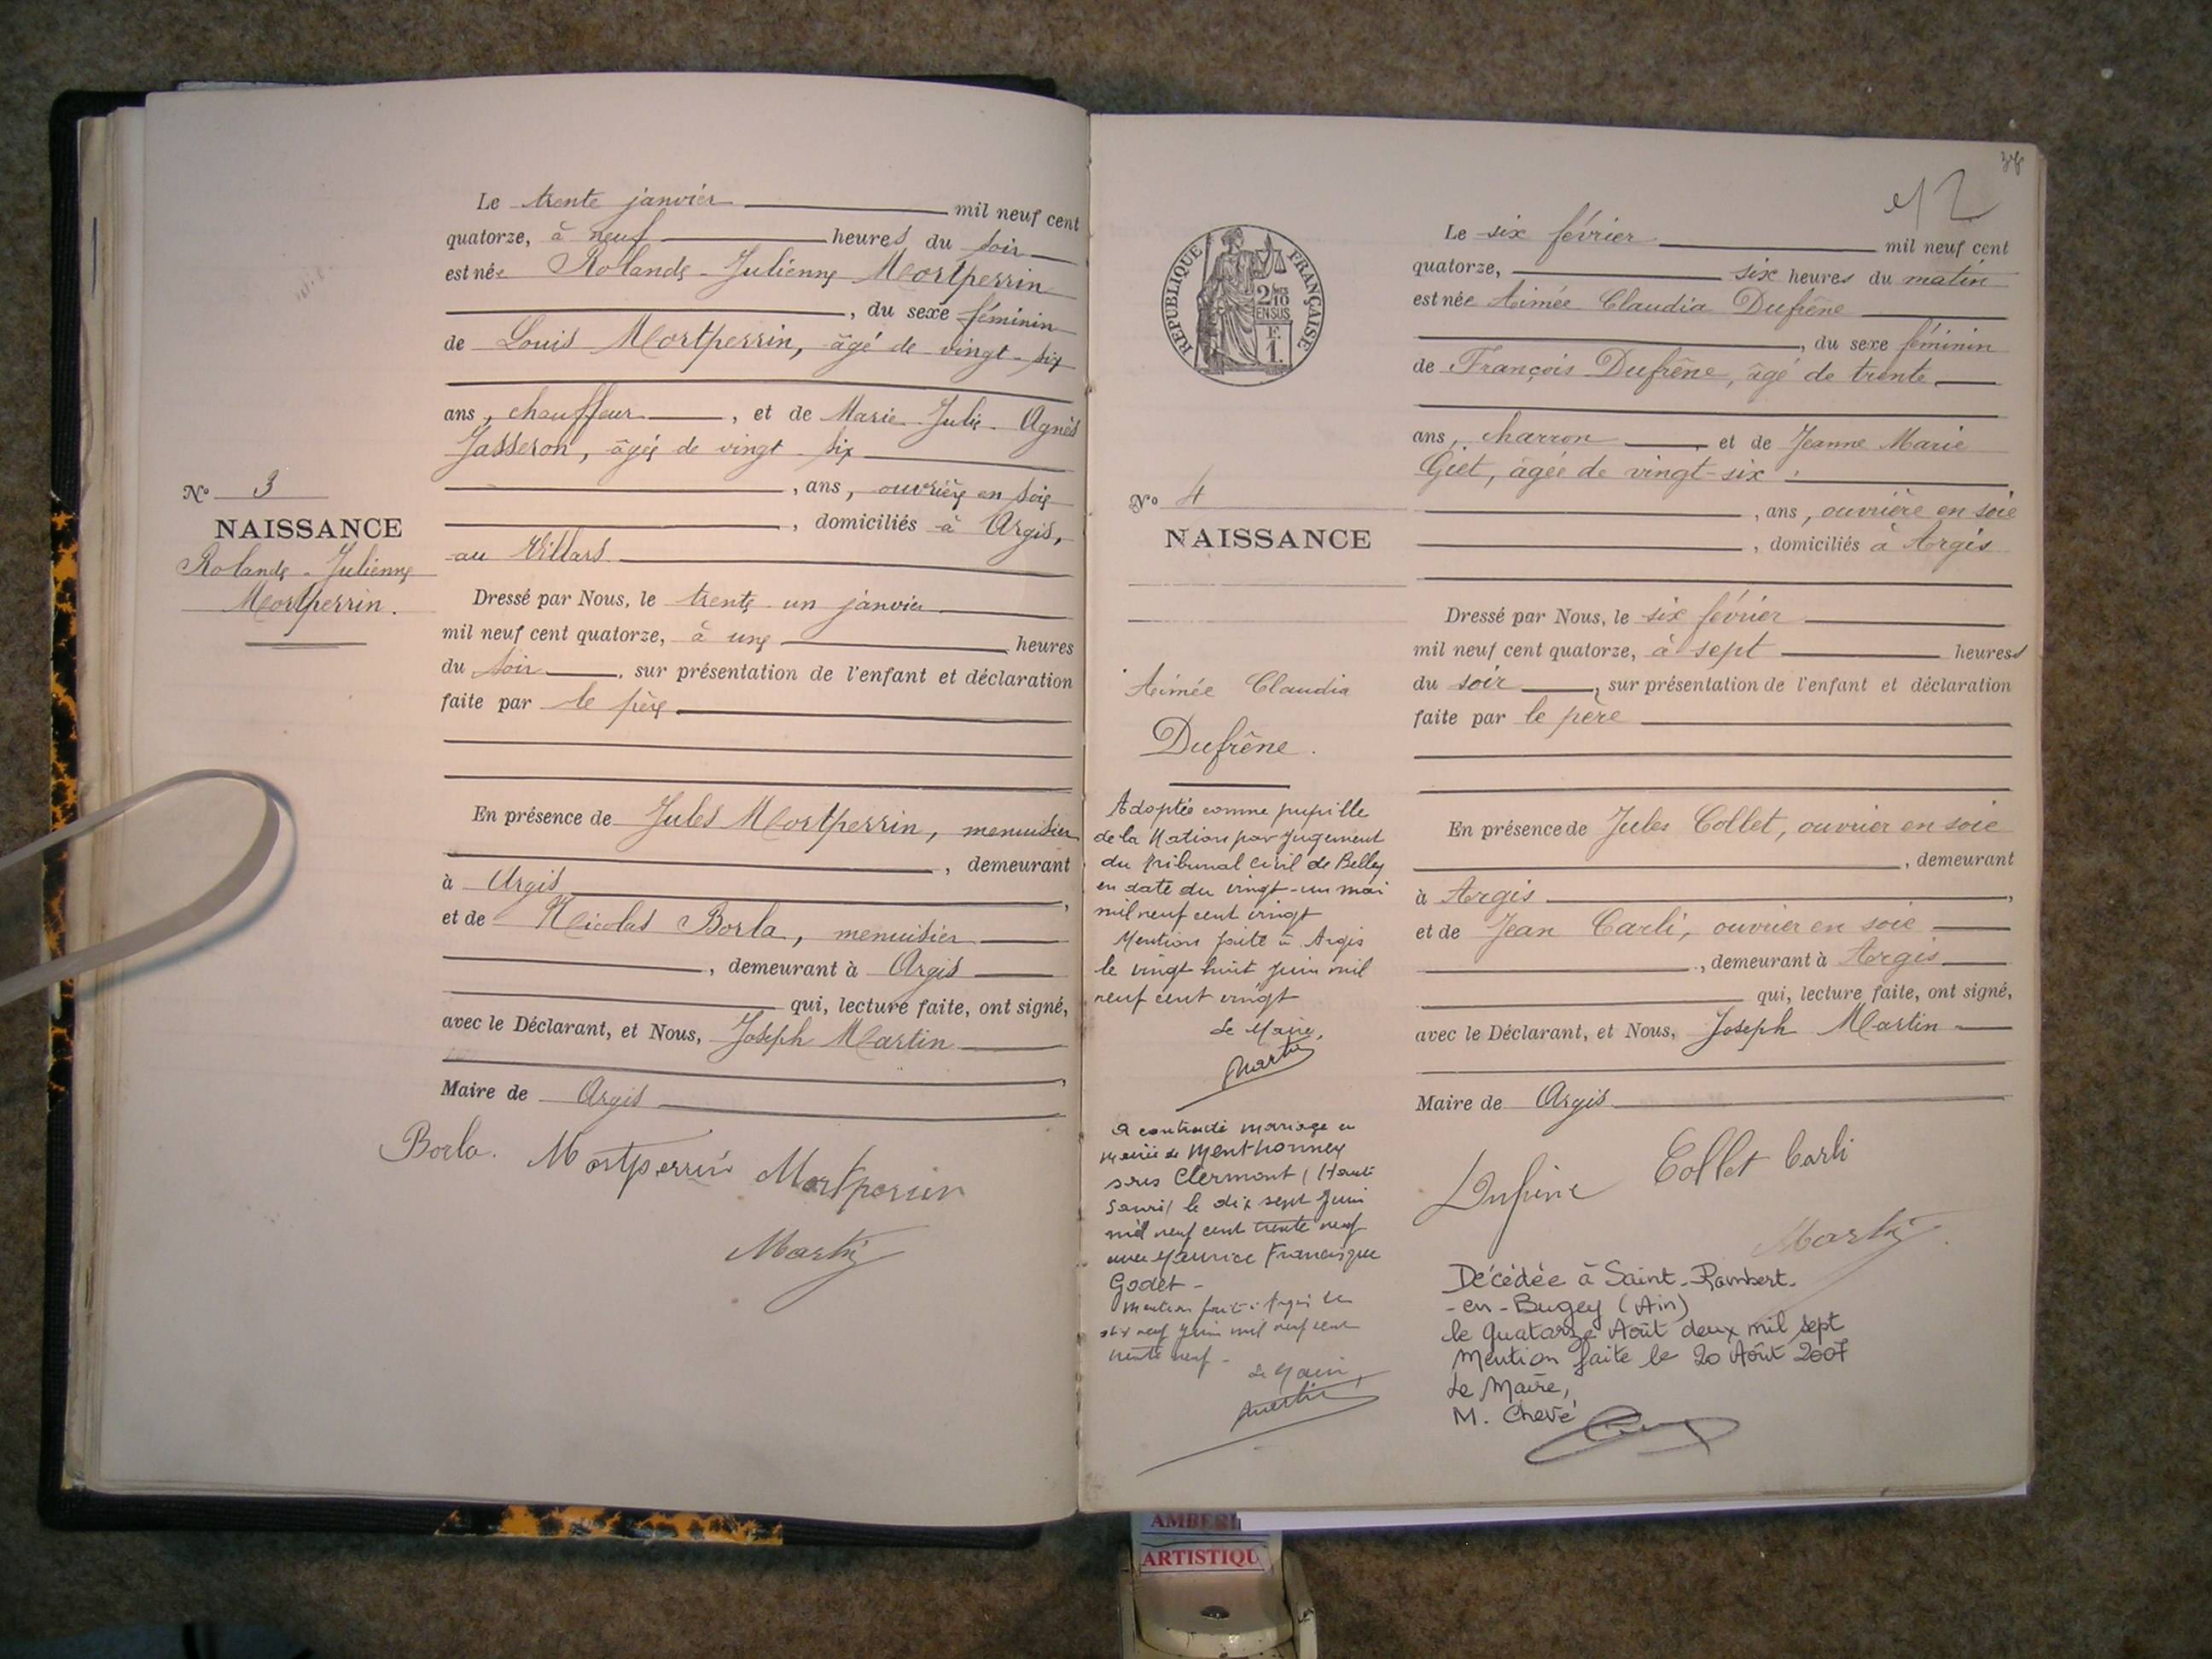 Le trente janvier mil neuf cent
quatorze, à neuf heures du soir
est née Rolande-Julienne Mortperrin
, du sexe féminin
de Louis Mortperrin, âgé de vingt-six
ans, chauffeur, et de Marie-Julie-Agnès
Jasseron, âgée de vingt-six
, ans, ouvrière en soie
, domiciliés à Argis,
au Villard
Nº 3
NAISSANCE
Rolande-Julienne
Mortperrin.
Dressé par Nous, le trente-un janvier
mil neuf cent quatorze, à une heures
du soir, sur présentation de l'enfant et déclaration
faite par le père
En présence de Jules Mortperrin, menuisier
, demeurant
à Argis,
et de Nicolas Borla, menuisier
, demeurant à Argis
qui, lecture faite, ont signé,
avec le Déclarant, et Nous, Joseph Martin
,
Maire de Argis
Borla. Mortperrin Mortperrin
Martin
38
12
RÉPUBLIQUE FRANÇAISE
2/10 EN SUS
F. 1.
Le six février mil neuf cent
quatorze, six heures du matin
est née Aimée Claudia Dufrêne
, du sexe féminin
de François Dufrêne, âgé de trente
ans, charron, et de Jeanne Marie
Giet, âgée de vingt-six
, ans, ouvrière en soie
, domiciliés à Argis
Nº 4
NAISSANCE
Aimée Claudia
Dufrêne.
Dressé par Nous, le six février
mil neuf cent quatorze, à sept heures
du soir, sur présentation de l'enfant et déclaration
faite par le père
En présence de Jules Collet, ouvrier en soie
, demeurant
à Argis,
et de Jean Carli, ouvrier en soie
, demeurant à Argis
qui, lecture faite, ont signé,
avec le Déclarant, et Nous, Joseph Martin
Maire de Argis
Dufrêne Collet Carli
Martin
Adoptée comme pupille
de la Nation par Jugement
du Tribunal civil de Belley
en date du vingt-un mai
mil neuf cent vingt
Mention faite à Argis
le vingt huit juin mil
neuf cent vingt
Le Maire,
Martin
A contracté mariage en
mairie de Menthonnex
sous Clermont (Haute
Savoie) le dix sept Juin
mil neuf cent trente neuf
avec Maurice Francisque
Godet-
Mention faite à Argis le
dix neuf Juin mil neuf cent
trente neuf-
Le Maire,
Martin
Décédée à Saint-Rambert-
-en-Bugey (Ain)
le Quatorze Août deux mil sept
Mention faite le 20 Août 2007
Le Maire,
M. Chevé
AMBERI
ARTISTIQU